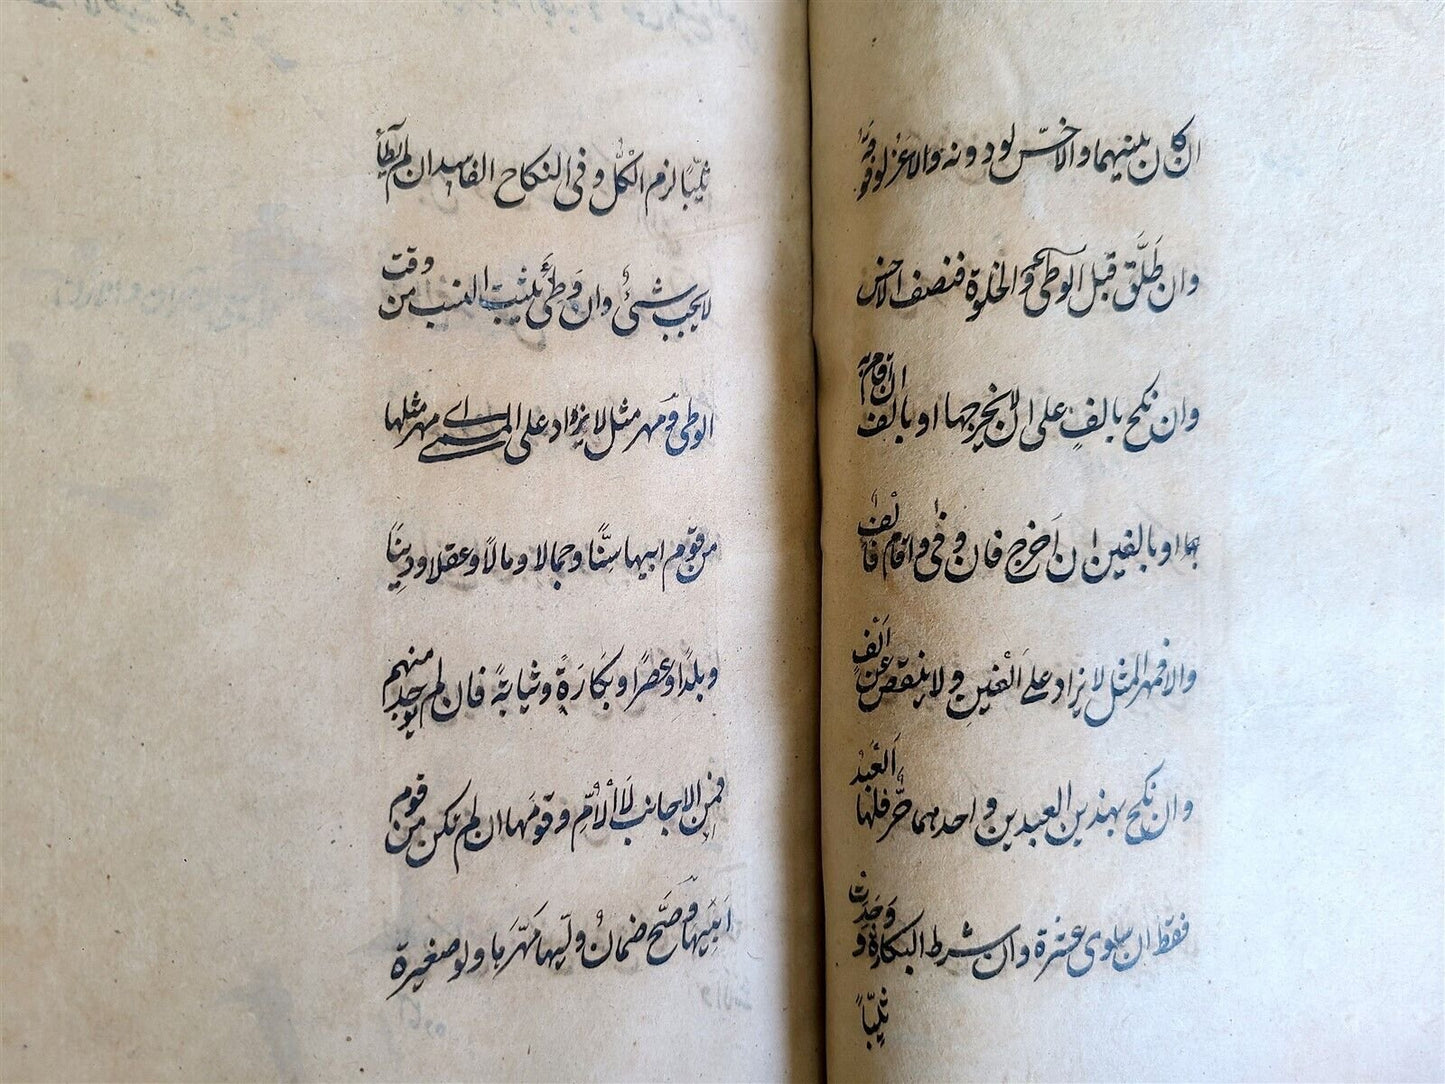 ان كان بينهما والاخسّ لو دونه والاعز لو فوقه
وان طَلَّق قبل الوطئ والخلوة فنصف الاخس
وان نكح بالفٍ على ان لا يخرجها او بالف ان اقام
بها او بالفين ان اخرج فان وفى واقام فالف
والا فمهر المثل لا يزاد على الفين ولا ينقص عن الف
وان نكح بهذين العبدين واحدهما حُرٌّ فلها العبد
فقط ان ساوى عشرة وان شرط البكارة ووجدت
ثيّبًا
ثيّبًا لزم الكُلُّ وفى النكاح الفاسد ان لم يطأ
لا يجب شئٌ وان وَطئَ يثبت النسب من وقت
الوطئ ومهر مثل لا يزاد على المسمى اى مهر مثلها
من قوم ابيها سنًّا وجمالا ومالًا وعقلا ودينًا
وبلدًا وعصرًا وبكارةً وثيابةً فان لم يوجد منهم
فمن الاجانب لا الامّ وقومها ان لم تكن من قوم
ابيها وصَحّ ضمانُ وليّها مَهرَها ولو صغيرة